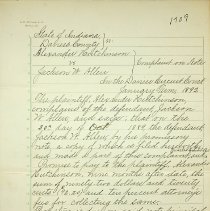 1709
State of Indiana
Daviess County } SS
Alexander Hutchinson
vs
Jackson W. Allen
Complaint on Note
In the Daviess Circuit Court
January Term 1893
The plaintiff, Alexander Hutchinson,
complains of the defendant Jackson
W. Allen and says, that on the
day of Oct 18 the defendant
Jackson W. Allen by his promissory
note a copy of which is filed
and made a part of this complaint
promised to pay to the plaintiff Alexander
Hutchinson, nine months after date, the
sum of ninety two dollars and twenty
cents and ten percent attorneys
fees for collecting the same.